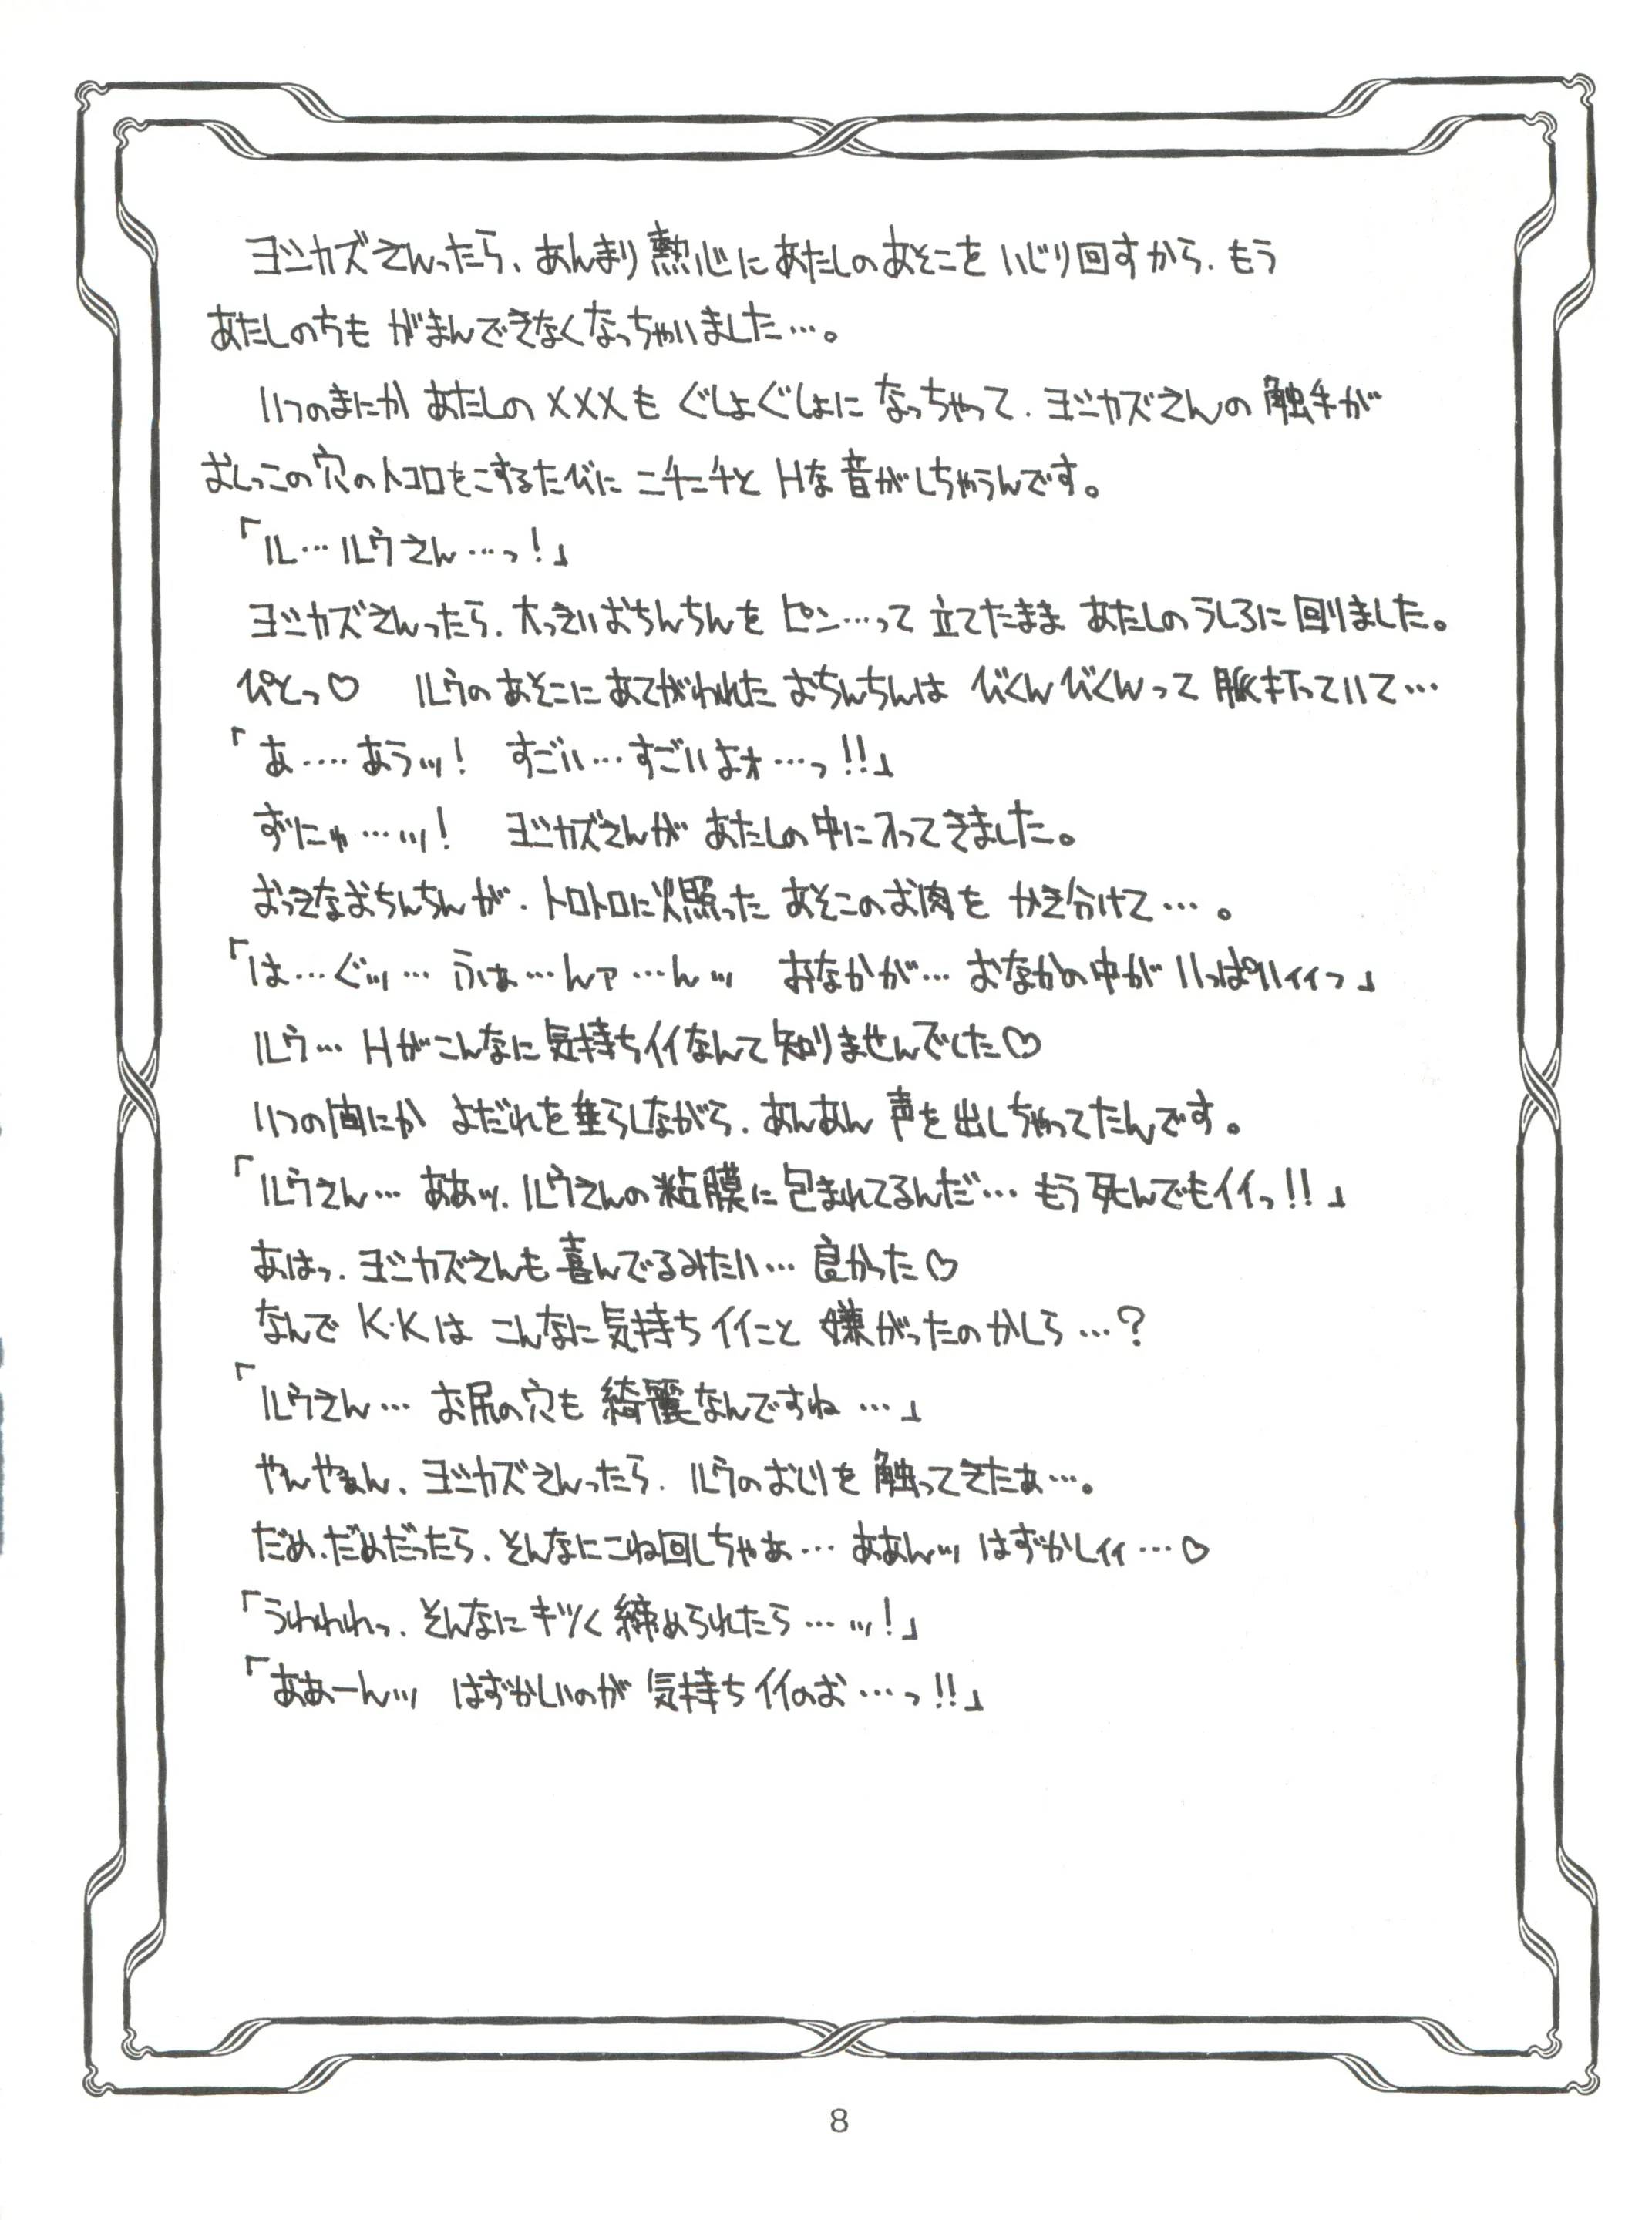 ヨシカズさんったら、あんまり熱心にあたしのあそこをいじり回すから、もう
あたしのちも がまんできなくなっちゃいました…。
いつのまにか あたしの×××も ぐしょぐしょに なっちゃって、ヨシカズさんの 触手が
おしっこの穴のトコロをこするたびに ニチニチと Hな音がしちゃうんです。
「ル…ルウさん…っ!」
ヨシカズさんったら、大っきいおちんちんを ピン…って 立てたまま あたしのうしろに回りました。
ぴとっ♡ ルウのあそこにあてがわれた おちんちんは びくんびくんって 脈打っていて…
「あ‥‥あうッ! すごい…すごいよォ…っ!!」
ずにゅ…ッ! ヨシカズさんが あたしの中に入ってきました。
おっきなおちんちんが、トロトロに火照った あそこのお肉を かき分けて…。
「は…ぐッ… ふは…んァ…んッ おなかが… おなかの中が いっぱいィィっ」
ルウ… Hがこんなに気持ちイイなんて知りませんでした♡
いつの間にか よだれを垂らしながら、あんあん 声を出しちゃってたんです。
「ルウさん… ああッ、ルウさんの粘膜に包まれてるんだ… もう死んでもイイっ!!」
あはっ、ヨシカズさんも喜んでるみたい… 良かった♡
なんで K・Kは こんなに気持ちイイこと 嫌がったのかしら…?
「ルウさん… お尻の穴も 綺麗なんですね…」
やんやぁん、ヨシカズさんったら、ルウのおしりを 触ってきたぁ…。
だめ、だめだったら、そんなにこね回しちゃぁ… ああんッ はずかしィィ…♡
「うわわわっ、そんなにキツく締められたら…ッ!」
「ああーんッ はずかしいのが 気持ちイイのお…っ!!」
8